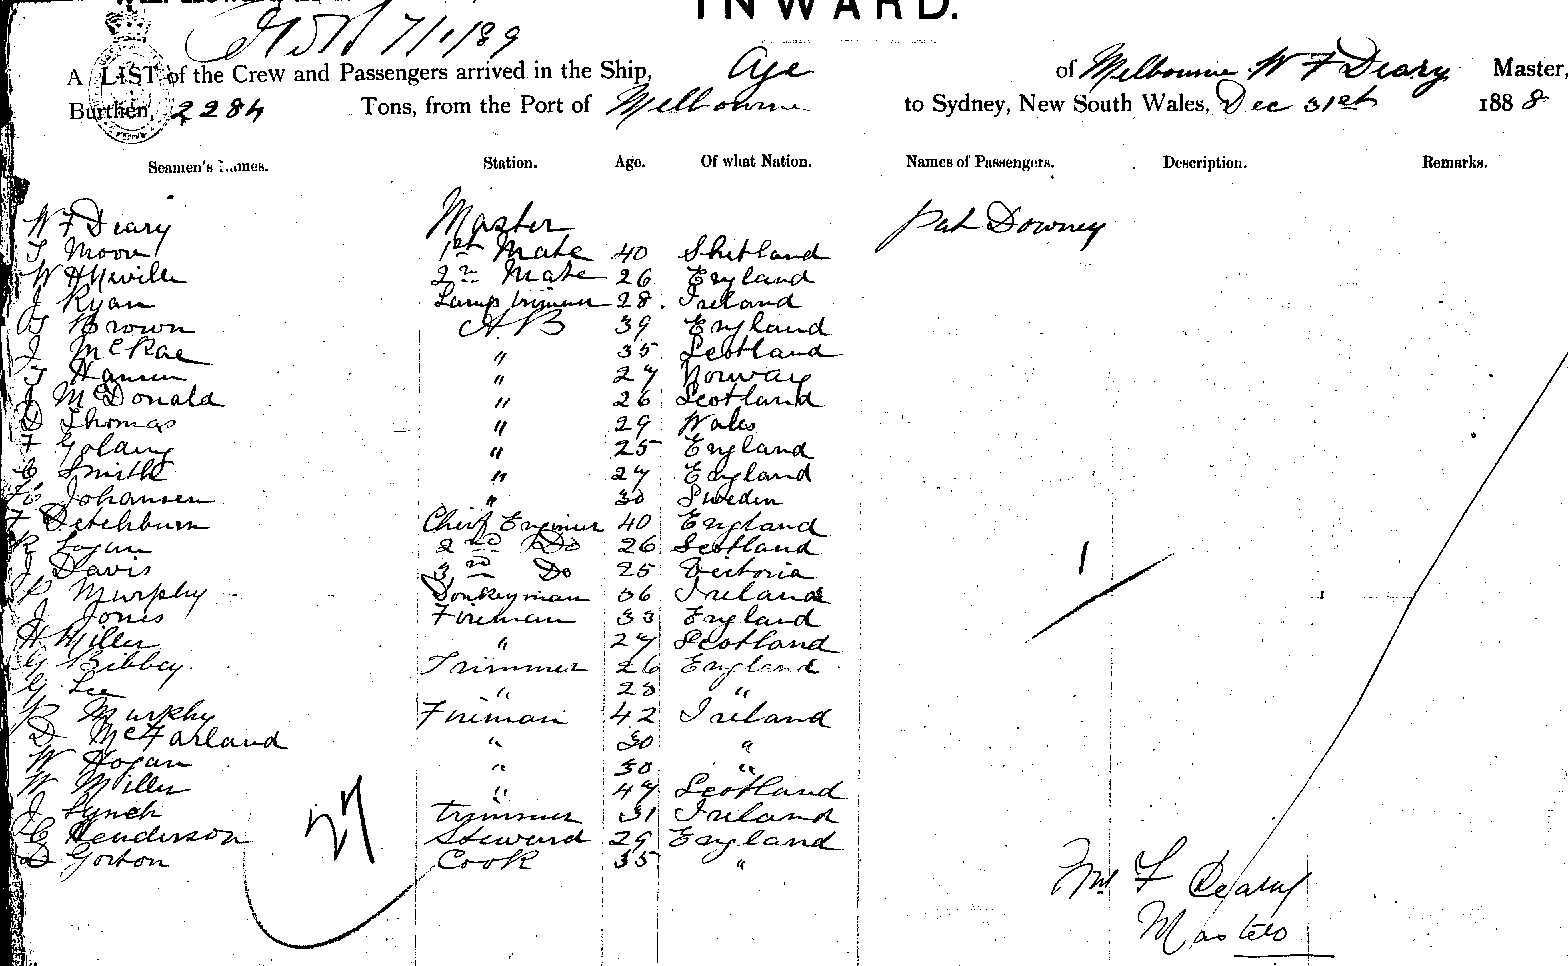 INWARD.
7/1/89
A LIST of the Crew and Passengers arrived in the Ship, Age of Melbourne W F Deary Master,
Burthen, 2284 Tons, from the Port of Melbourne to Sydney, New South Wales, Dec 31st 1888
Seamen's Names. Station. Age. Of what Nation. Names of Passengers. Description. Remarks.
W F Deary Master Pat Downey
T Moore 1st Mate 40 Shetland
W H Neville 2nd Mate 26 England
J Ryan Lamp trimmer 28. Ireland
Brown A.B 39 England
J McRae " 35 Scotland
T Hansen " 27 Norway
J McDonald " 26 Scotland
D Thomas " 29 Wales
F Golding " 25 England
C Smith " 27 England
Johansen " 30 Sweden
F Detchburn Chief Engineer 40 England
R Logan 2nd Do 26 Scotland
J Davis 3rd Do 25 Victoria
P Murphy Donkeyman 36 Ireland
J Jones Fireman 33 England
H Miller " 27 Scotland
G Bibbey Trimmer 26 England
G Lee " 23 "
P Murphy Fireman 42 Ireland
D McFarland " 30 "
W Hogan " 30 "
W Miller " 47 Scotland
J Lynch trimmer 31 Ireland
C Henderson Steward 29 England
D Gorton Cook 35 "
27
1
Wm F Deary
Master